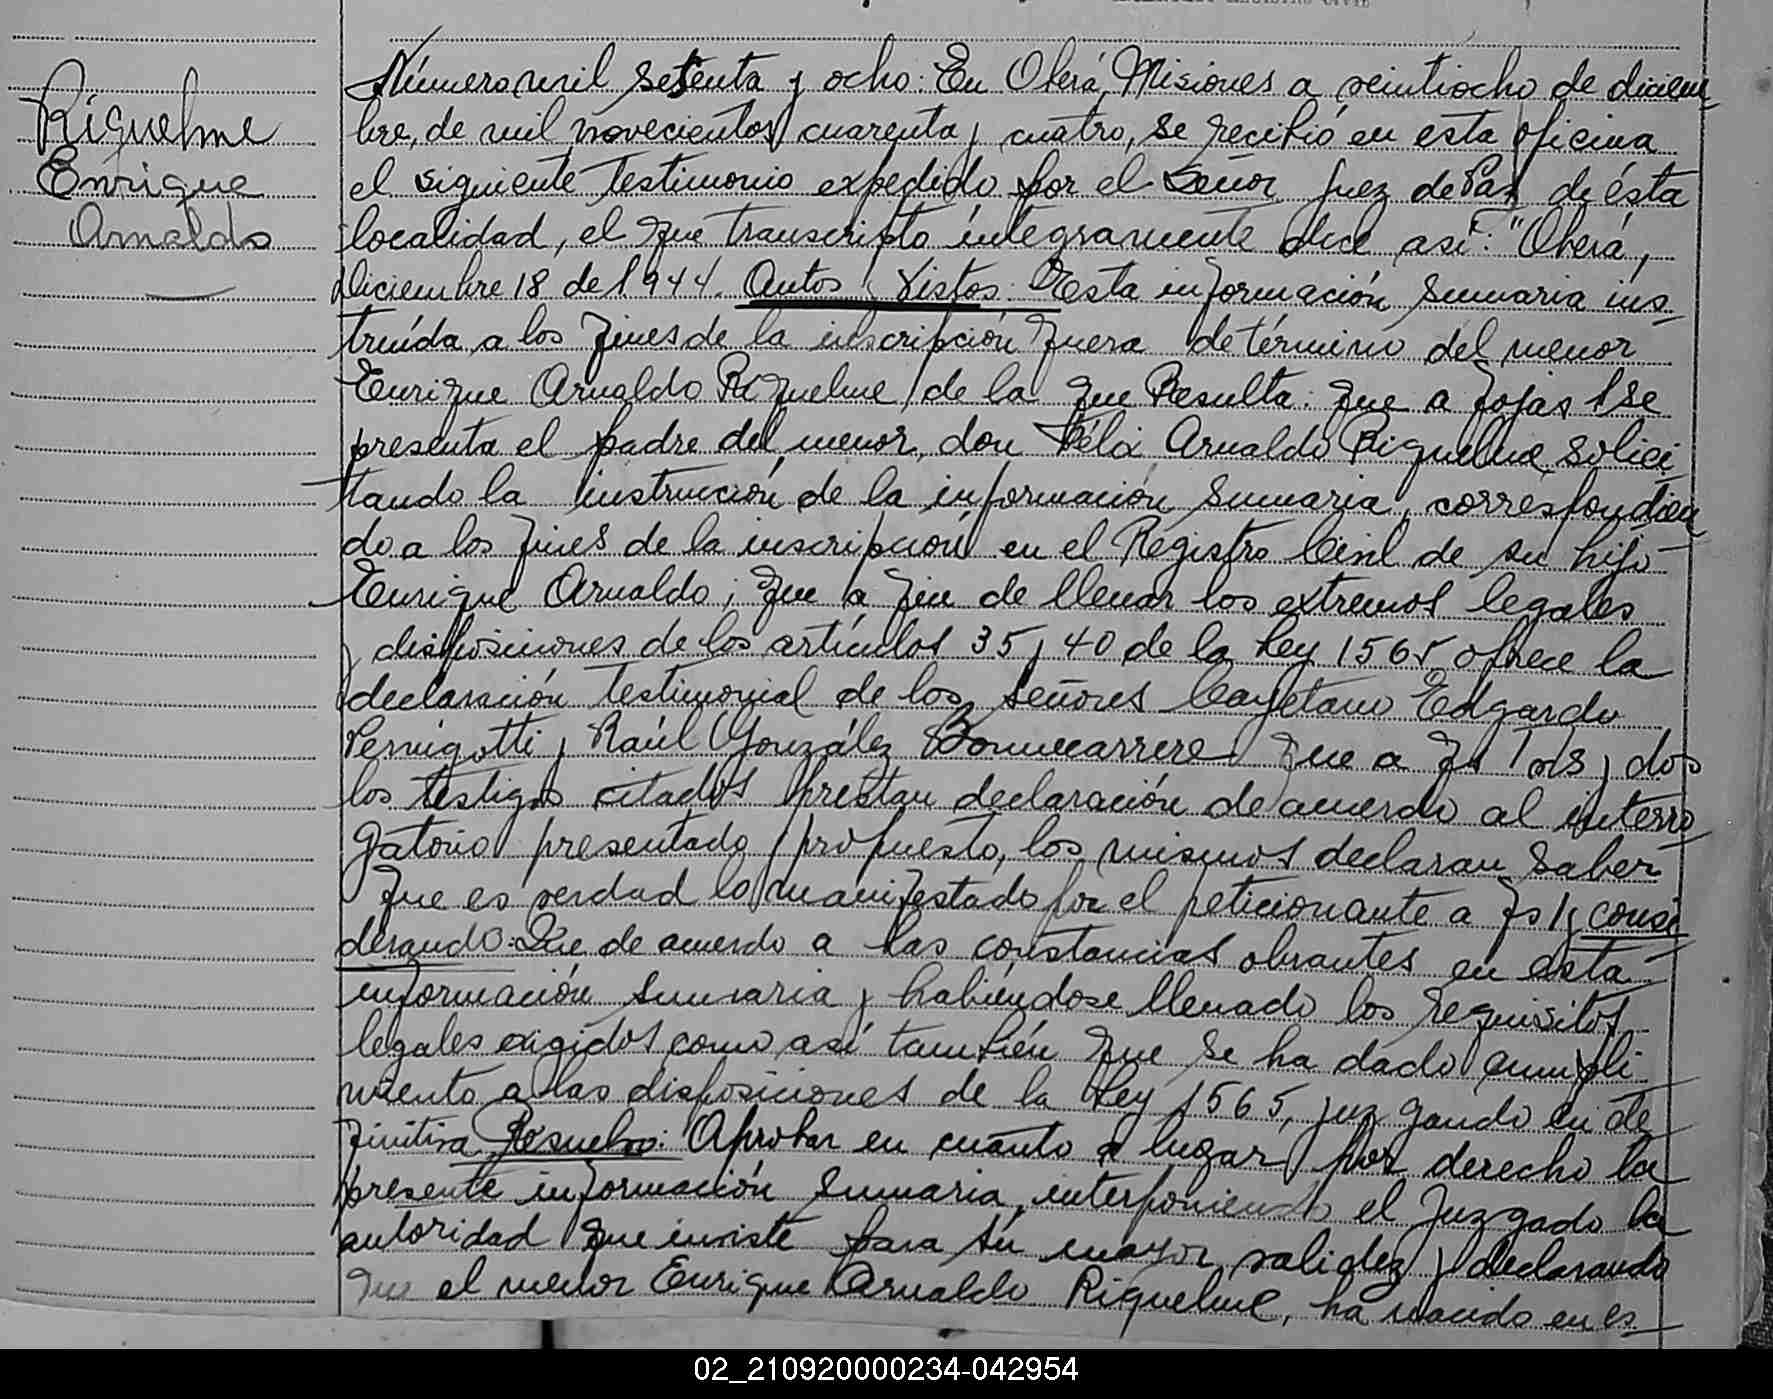 Riquelme
Enrique
Arnaldo
Número mil setenta y ocho: En Oberá, Misiones a veintiocho de diciem
bre, de mil novecientos cuarenta y cuatro, se recibió en esta oficina
el siguiente testimonio expedido por el señor Juez de Paz de ésta
localidad, el que transcripto íntegramente dice así: "Oberá,
Diciembre 18 de 1944. Autos y Vistos: Esta información sumaria ins
truída a los fines de la inscripción fuera de término del menor
Enrique Arnaldo Riquelme de la que Resulta: que a fojas 1 se
presenta el padre del menor, don Félix Arnaldo Riquelme solici
tando la instrucción de la información sumaria, correspondien
do a los fines de la inscripción en el Registro Civil de su hijo
Enrique Arnaldo; que a fin de llenar los extremos legales
y disposiciones de los artículos 35 y 40 de la Ley 1565 ofrece la
declaración testimonial de los señores Cayetano Edgardo
Pernigotti y Raúl González Bonnecarrere que a fs y dos
los testigos citados prestan declaración de acuerdo al interro
gatorio presentado y propuesto, los mismos declaran saber
que es verdad lo manifestado por el peticionante a fs 1 y consi
derando: Que de acuerdo a las constancias obrantes en esta
información sumaria y habiéndose llenado los requisitos
legales exigidos como así también que se ha dado cumpli
miento a las disposiciones de la Ley 1565, juzgando en de
finitiva Resuelvo: Aprobar en cuanto a lugar por derecho la
presente información sumaria, interponiendo el Juzgado la
autoridad que inviste para su mayor validez y declarando
que el menor Enrique Arnaldo Riquelme, ha nacido en es
02_210920000234-042954